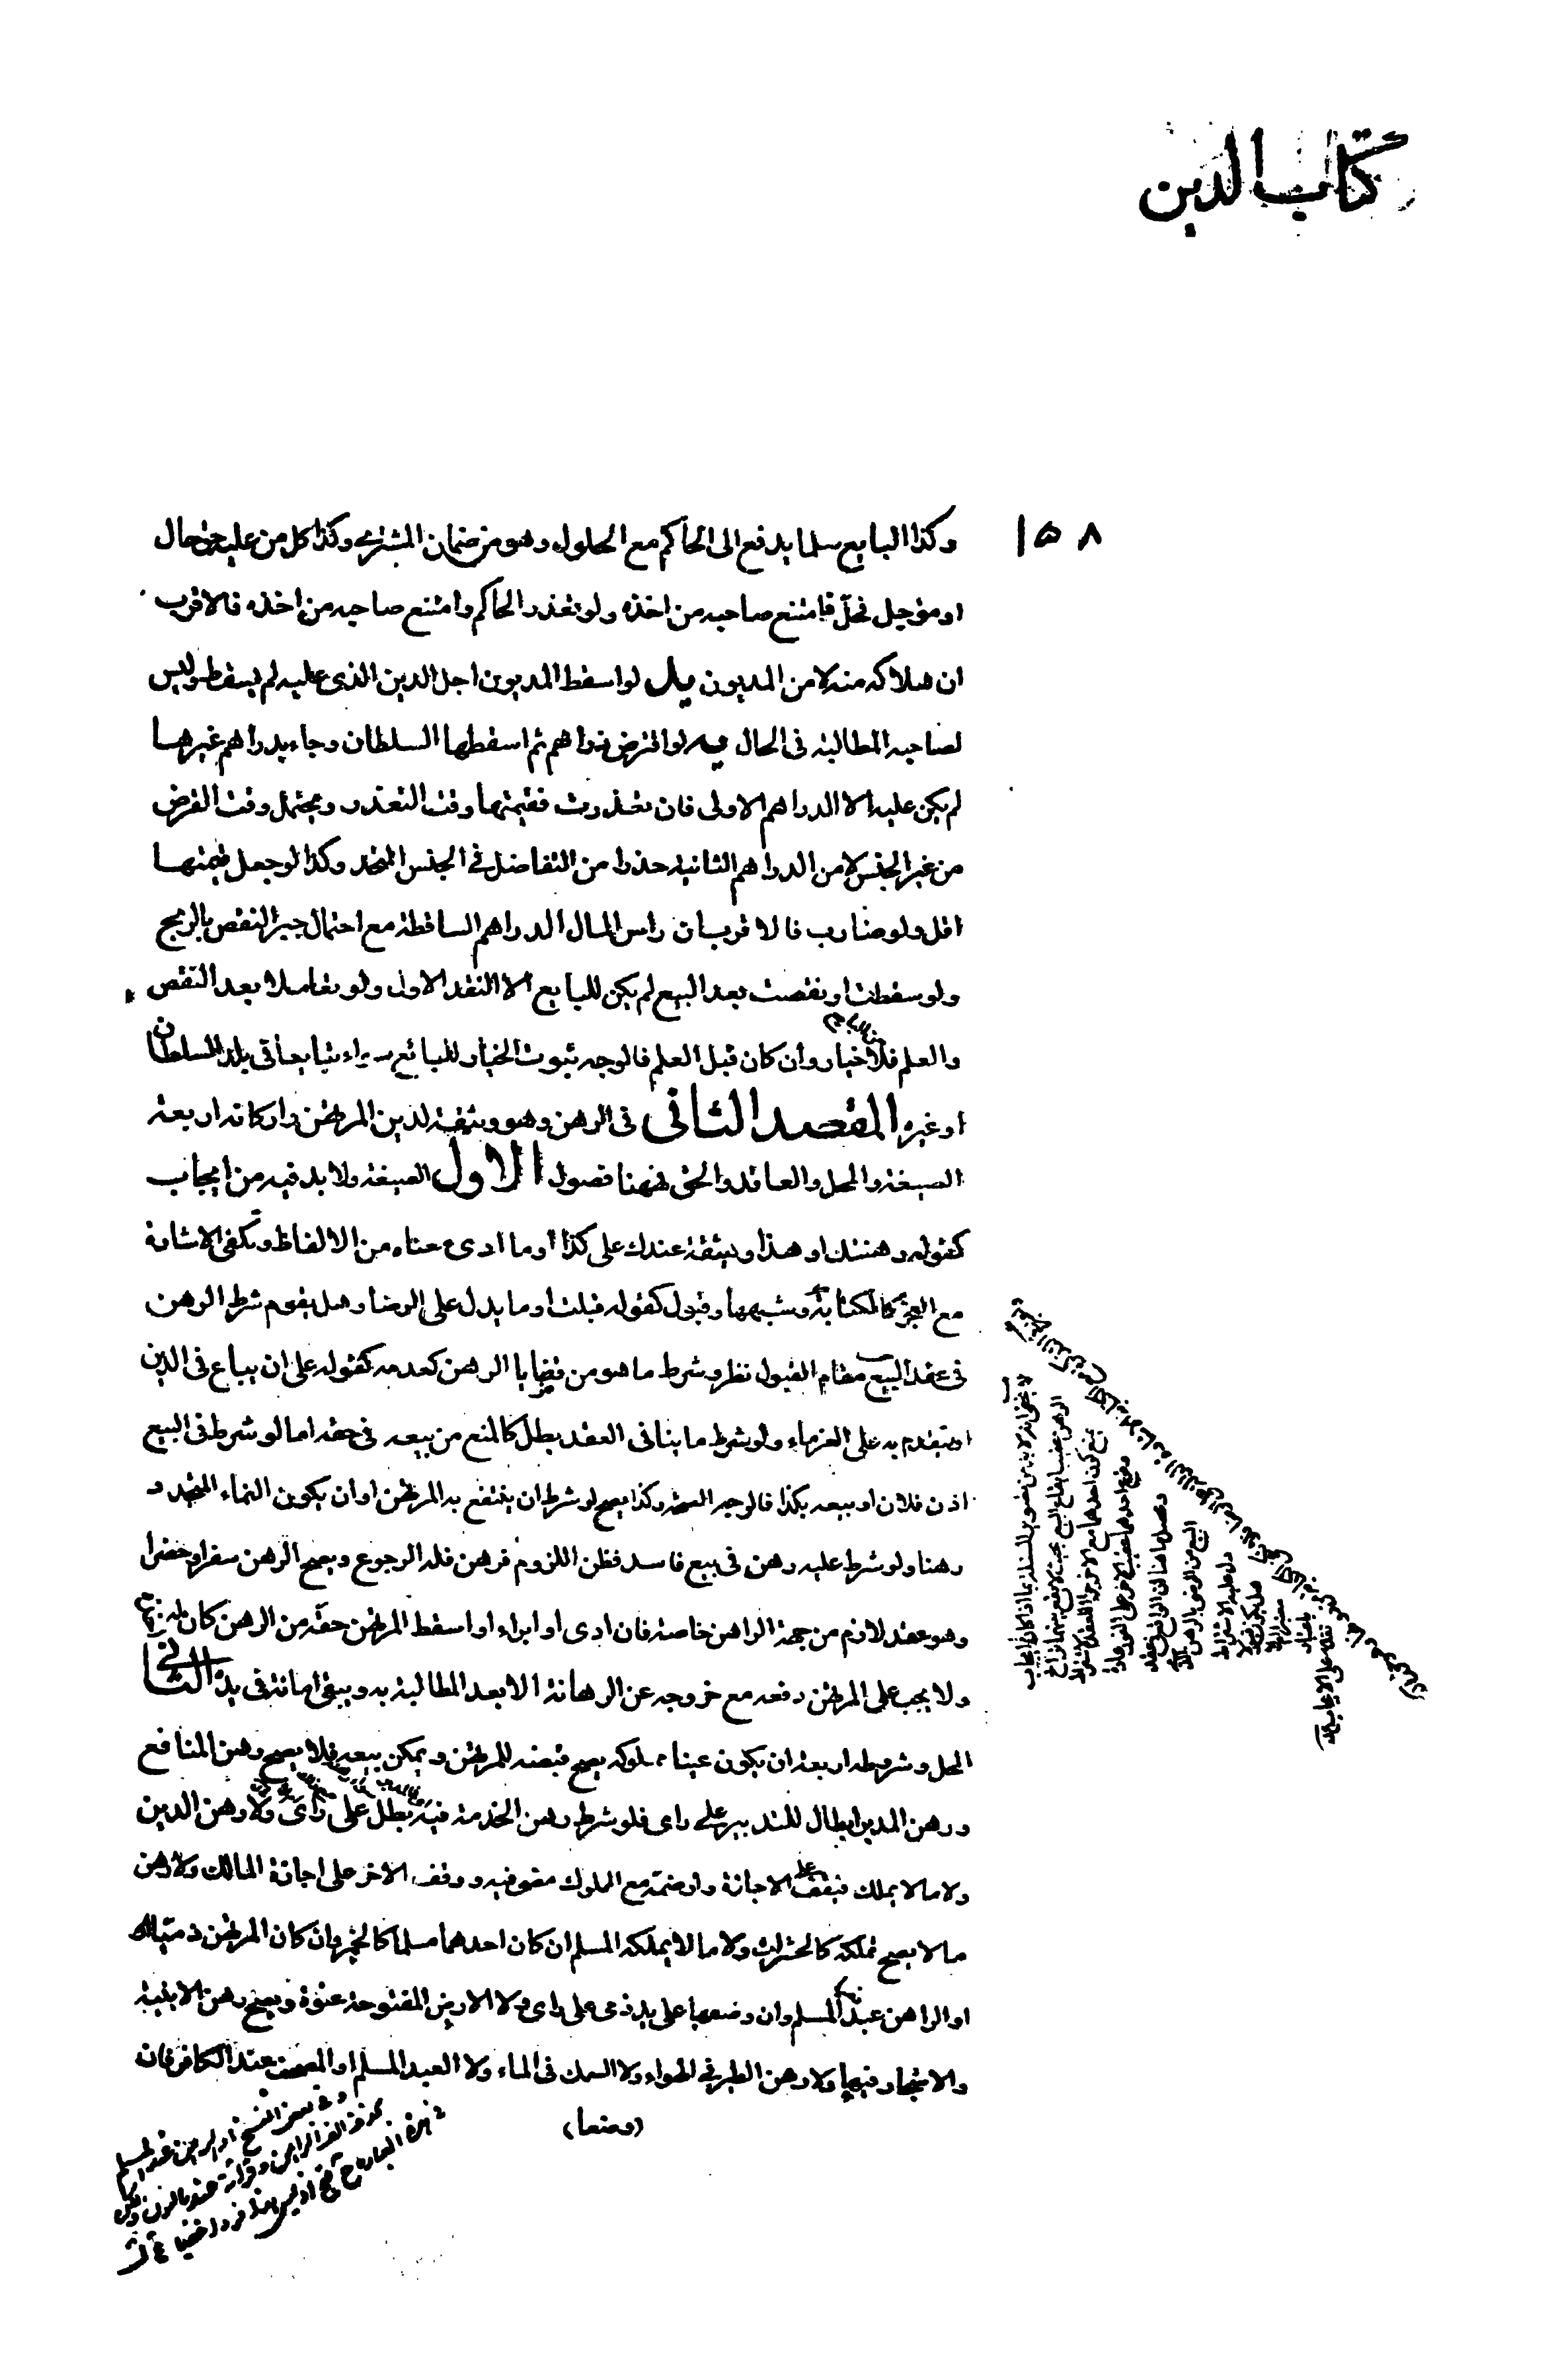 كتاب الدين
١٥٨
وكذا البايع سلما يدفع الى الحاكم مع الحلول وهو من ضمان المشتري وكذا كل من عليه حق حال
او مؤجل فحل فامتنع صاحبه من اخذه ولو تعذر الحاكم وامتنع صاحبه من اخذه فالاقرب
ان هلاكه منه لا من المديون يد لو اسقط المديون اجل الدين الذى عليه لم يسقط وليس
لصاحبه المطالبة فى الحال يه لو اقترض دراهم ثم اسقطها السلطان وجاء بدراهم غيرها
لم يكن عليه الا الدراهم الاولى فان تعذرت فقيمتها وقت التعذر ويحتمل وقت القرض
من غير الجنس لا من الدراهم الثانية حذرا من التفاضل في الجنس المتحد وكذا لو جعل قيمتها
اقل ولو ضارب فالاقرب ان راس المال الدراهم الساقطة مع احتمال جبر النقص بالربح
ولو سقطت او نقصت بعد البيع لم يكن للبايع الا النقد الاول ولو تعاملا بعد النقص
والعلم فلا خيار وان كان قبل العلم فالوجه ثبوت الخيار للبائع سواء تبايعا فى بلد السلطان
او غيره المقصد الثانى فى الرهن وهو وثيقة لدين المرتهن واركانه اربعة
الصيغة والمحل والعاقد والحق فهنا فصول الاول الصيغة ولا بد فيه من ايجاب
كقوله رهنتك او هذا وثيقة عندك على كذا او ما ادى معناه من الالفاظ وتكفى الاشارة
مع العجز كالكتابة وشبهها وقبول كقوله قبلت او ما يدل على الرضا وهل يقوم شرط الرهن
فى عقد البيع مقام القبول نظر وشرط ما هو من قضايا الرهن كعدمه كقوله على ان يباع فى الدين
او يتقدم به على الغرماء ولو شرط ما ينافى العقد بطل كالمنع من بيعه فى حقه اما لو شرط فى البيع
اذن فلان او بيعه بكذا فالوجه الصحة وكذا يصح لو شرط ان ينتفع به المرتهن او ان يكون النماء المتجدد
رهنا ولو شرط عليه رهن فى بيع فاسد فظن اللزوم فرهن فله الرجوع ويصح الرهن سفرا وحضرا
وهو عقد لازم من جهة الراهن خاصة فان ادى او ابراء او اسقط المرتهن حقه من الرهن كان له
ولا يجب على المرتهن دفعه مع خروجه عن الرهانة الا بعد المطالبة به ويبقى امانة فى يده الثانى
المحل وشروطه اربعة ان يكون عينا مملوكه يصح قبضه للمرتهن ويمكن بيعه فلا يصح رهن المنافع
ورهن المدبر ابطال للتدبير على راى فلو شرط رهن الخدمة فيه بطل على راى ولا رهن الدين
ولا ما لا يملك فيقف على الاجازة ولو ضمه مع المملوك مضى فيه ووقف الاخر على اجازة المالك ولا رهن
ما لا يصح تملكه كالحشرات ولا ما لا يملكه المسلم ان كان احدهما مسلما كالخمر وان كان المرتهن ذميا
او الراهن عند المسلم وان وضعها على يد ذمى على راى ولا الارض المفتوحة عنوة ويصح رهن الابنية
والاشجار فيها ولا رهن الطير في الهواء ولا السمك فى الماء ولا العبد المسلم او المصحف عند الكافر فان
(وضعا)